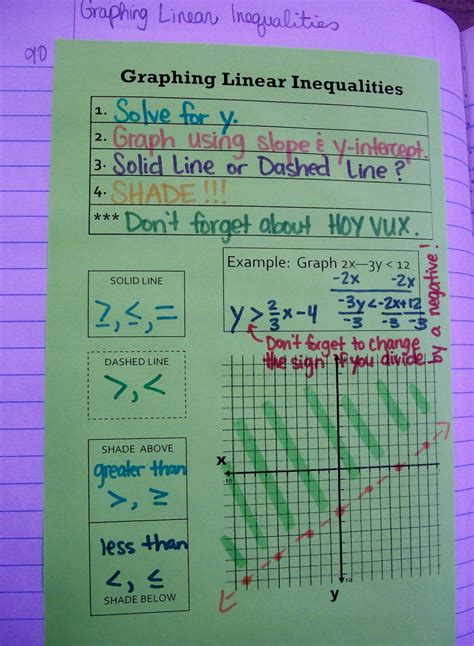 Graphing Linear Inequalities
90
Graphing Linear Inequalities
1. Solve for y.
2. Graph using slope & y-intercept.
3. Solid Line or Dashed Line?
4. SHADE!!!
*** Don't forget about HOY VUX.
SOLID LINE
≥, ≤, =
DASHED LINE
>, <
SHADE ABOVE
greater than
>, ≥
less than
<, ≤
SHADE BELOW
Example: Graph 2x—3y < 12
-2x -2x
-3y < -2x+12
-3 -3 -3
y > 2/3 x - 4
Don't forget to change
the sign if you divide
by a negative!
x
-10
10
y